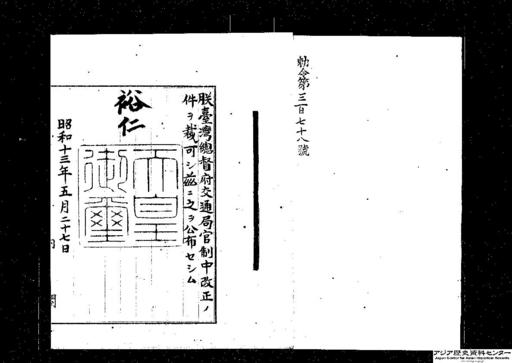 勅令第三百七十八號
朕臺灣總督府交通局官制中改正ノ
件ヲ裁可シ茲ニ之ヲ公布セシム
裕仁
天皇
御璽
昭和十三年五月二十七日
アジア歴史資料センター
Japan Center for Asian Historical Records